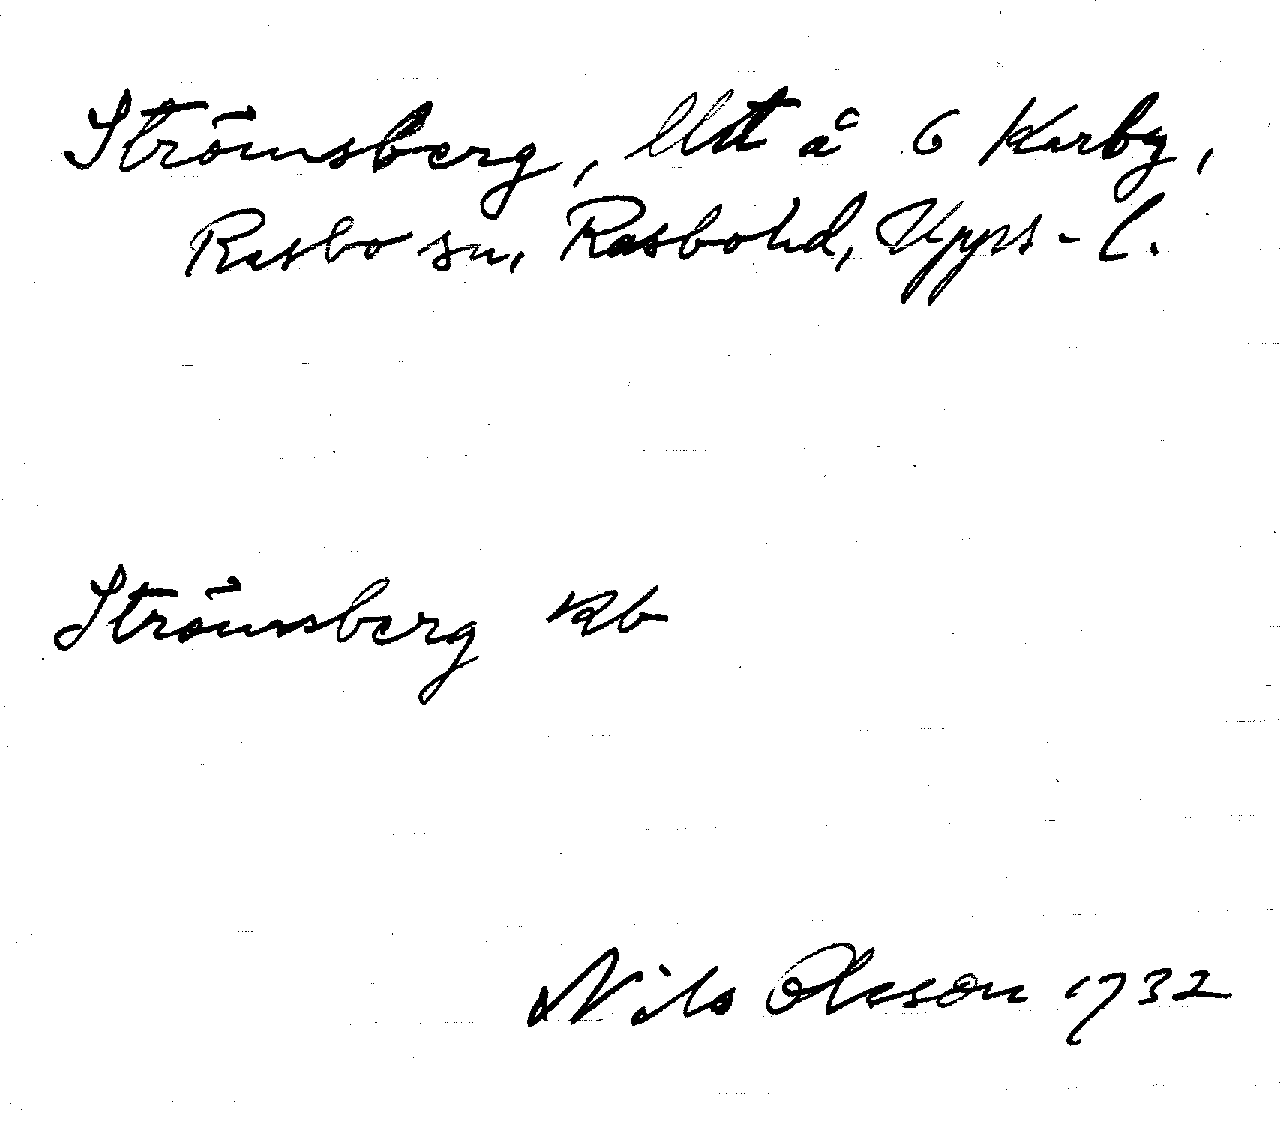 Strömsberg, llht å 6 Karby,
Rasbo sn, Rasbo hd, Upps. l.
Strömsberg Kb
Nils Olsson 1932